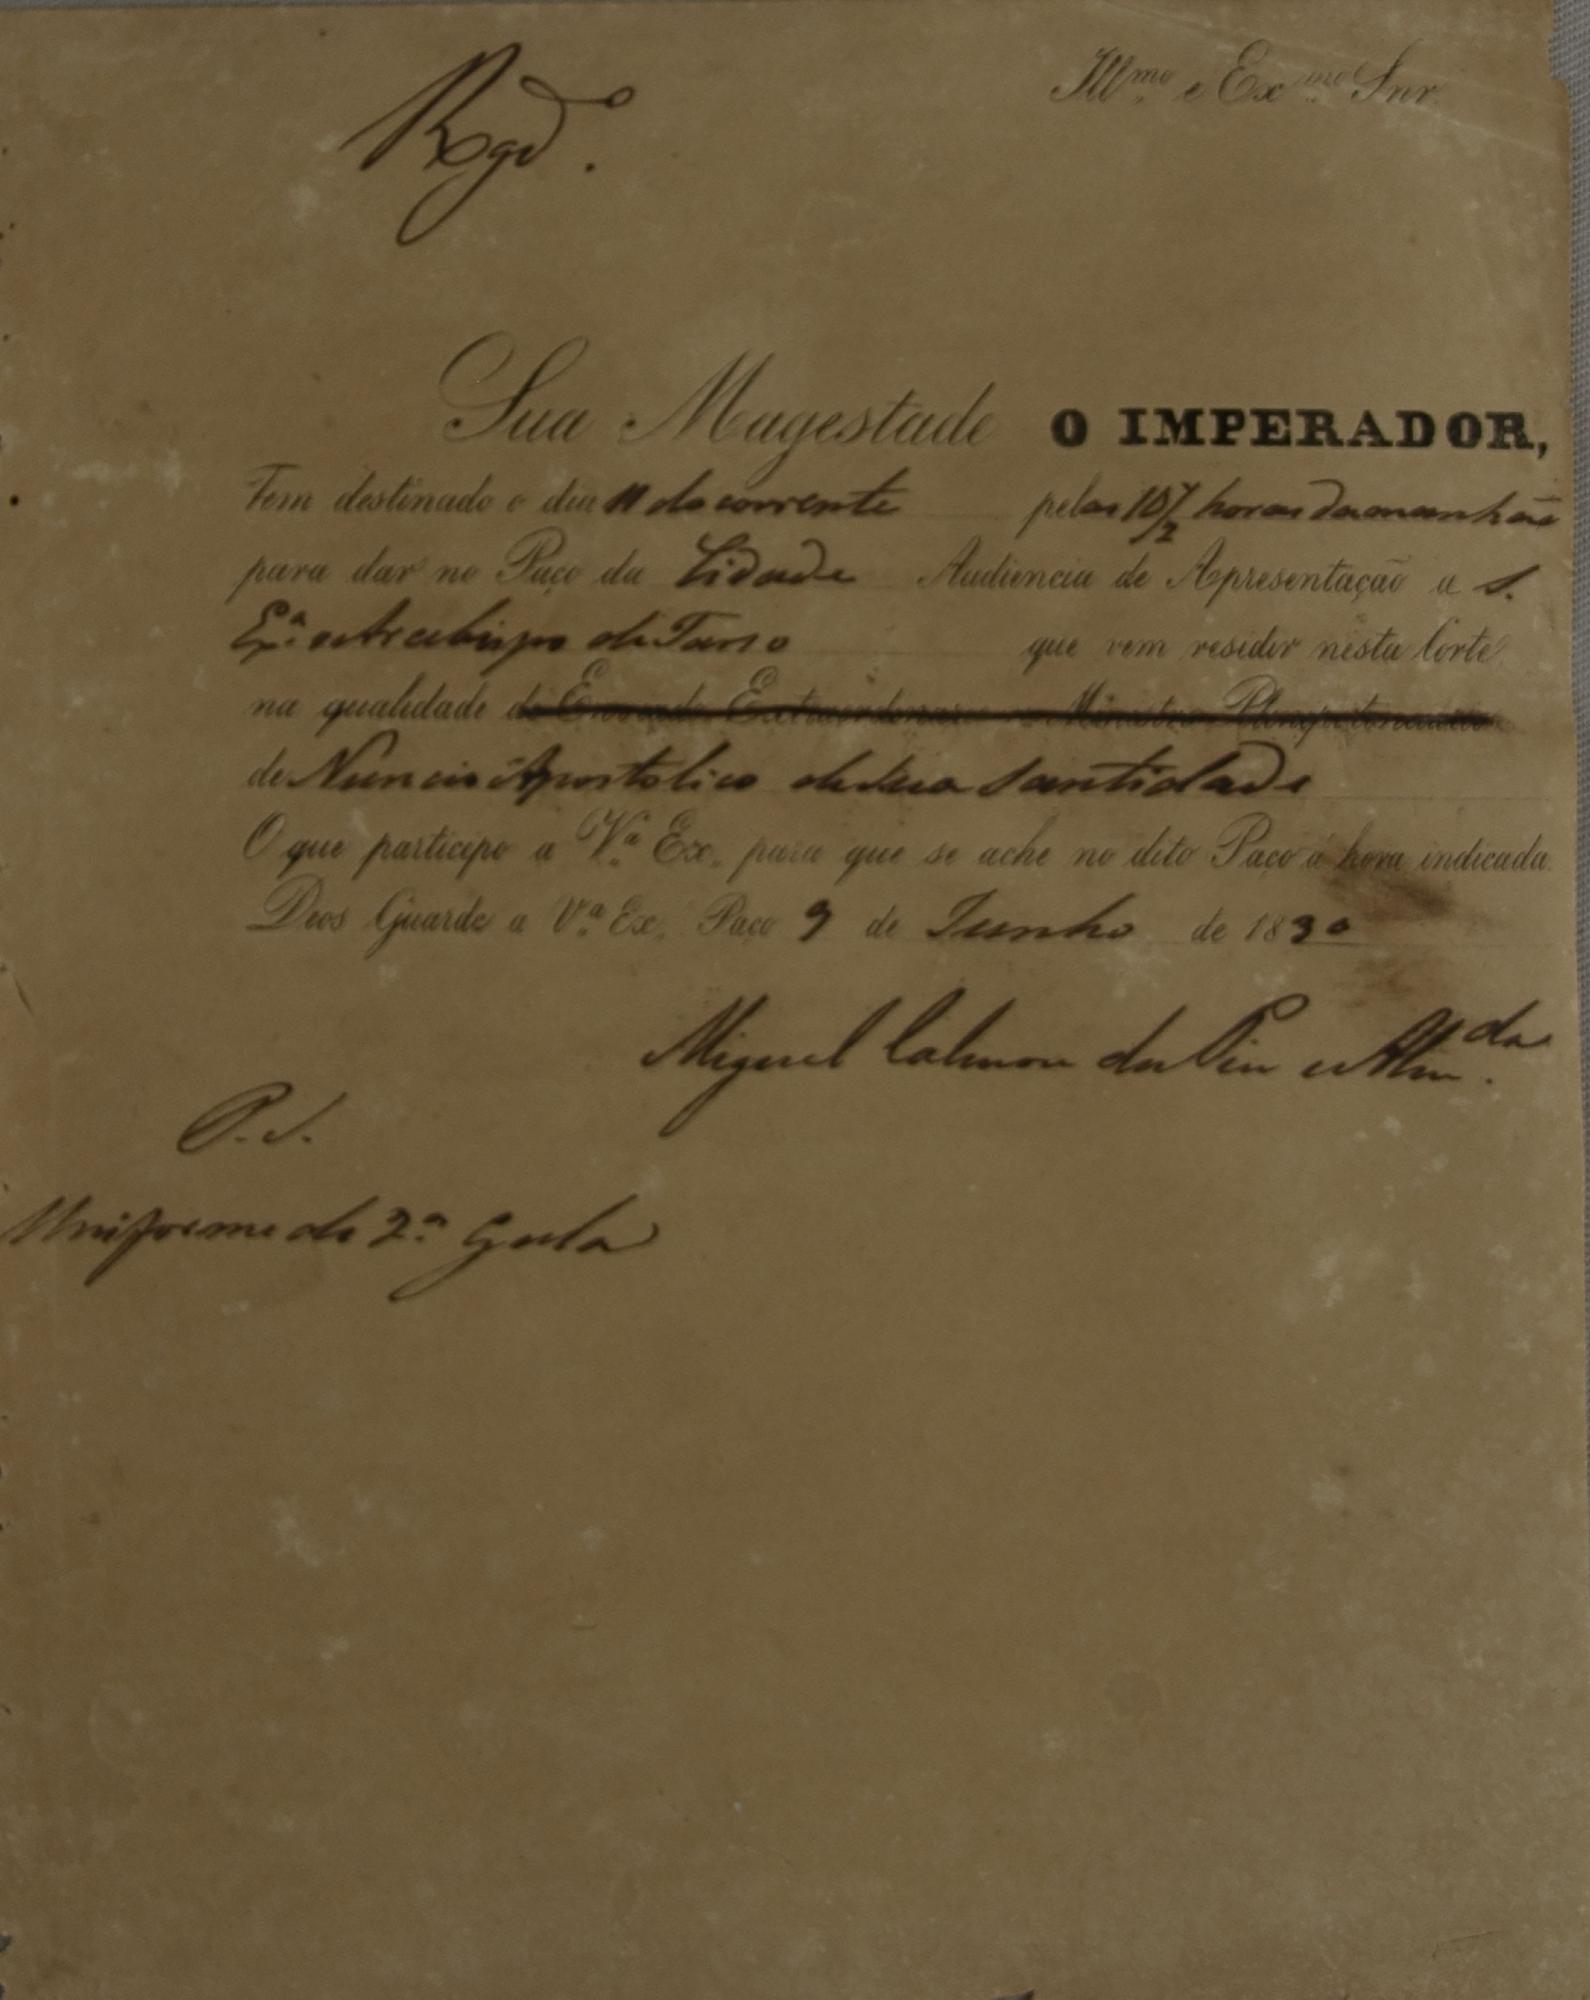 Rgdo.
Illmo e Exmo Snr
Sua Magestade O IMPERADOR,
Tem destinado o dia 11 do corrente pelas 10 1/2 horas da manhãa
para dar no Paço da Cidade Audiencia de Apresentação a S.
Exa. o Arcebispo de Tarso que vem residir nesta Corte
na qualidade de Enviado Extraordinario e Ministro Plenipotenciario
de Nuncio Apostolico de Sua Santidade
O que participo a Va. Ex. para que se ache no dito Paço á hora indicada.
Deos Guarde a Va. Ex. Paço 9 de Junho de 1830
Miguel Calmon du Pin e Almda.
P.S.
Uniforme de 2a. Gala